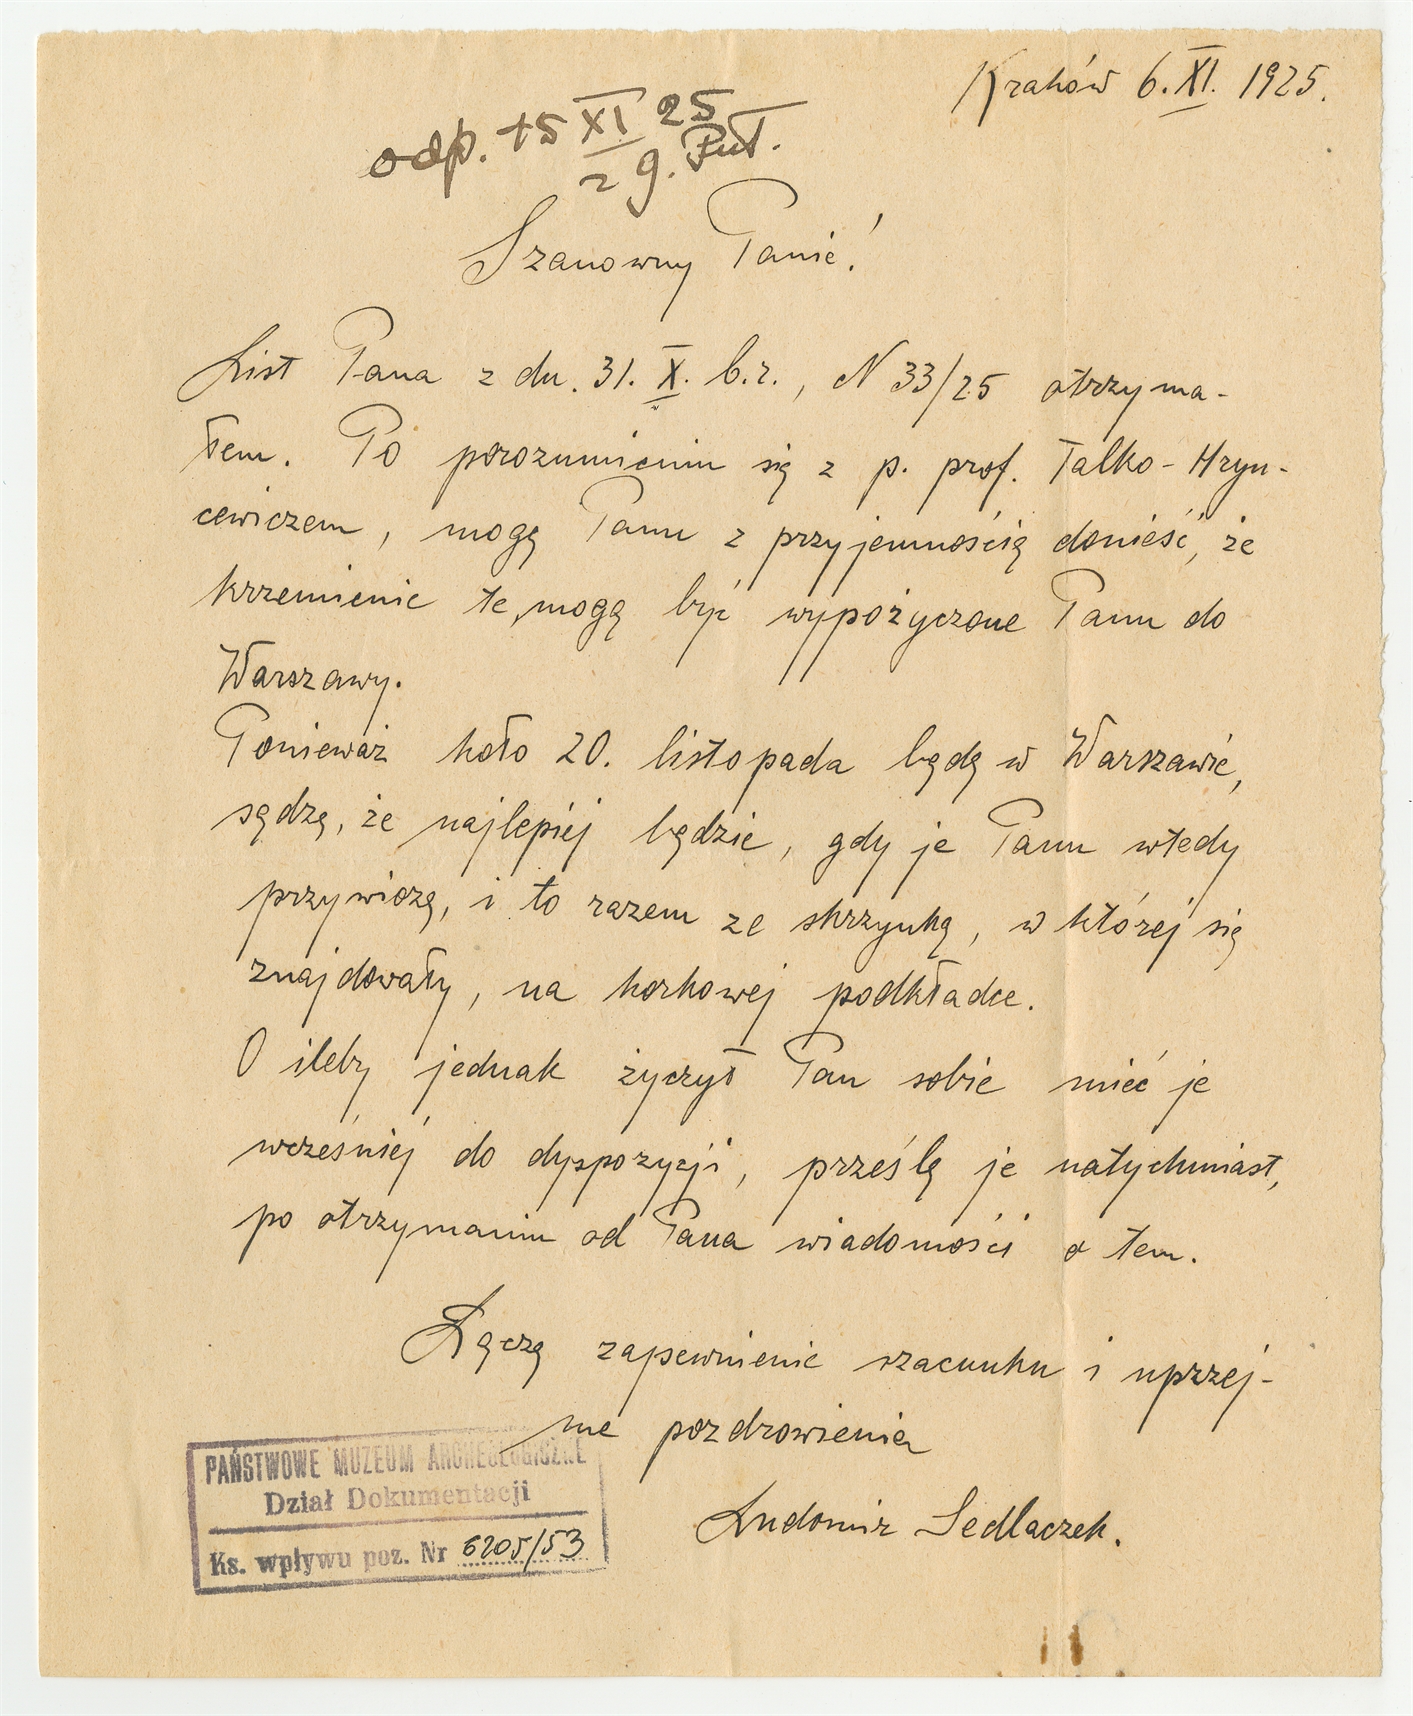 Kraków 6. XI. 1925.
odp. 15 XI 25
z g. Put.
Szanowny Panie!
List Pana z dn. 31. X. b.r., N 33/25 otrzyma-
łem. Po porozumieniu się z p. prof. Talko-Hryn-
cewiczem, mogę Panu z przyjemnością donieść, że
krzemienie te, mogą być wypożyczone Panu do
Warszawy.
Ponieważ koło 20. listopada będę w Warszawie,
sądzę, że najlepiej będzie, gdy je Panu wtedy
przywiozę, i to razem ze skrzynką, w której się
znajdowały, na korkowej podkładce.
O ileby jednak życzył Pan sobie mieć je
wcześniej do dyspozycji, prześlę je natychmiast,
po otrzymaniu od Pana wiadomości o tem.
Łączę zapewnienie szacunku i uprzej-
me pozdrowienia
Ludomir Sedlaczek.
PAŃSTWOWE MUZEUM ARCHEOLOGICZNE
Dział Dokumentacji
Ks. wpływu poz. Nr 6205/53